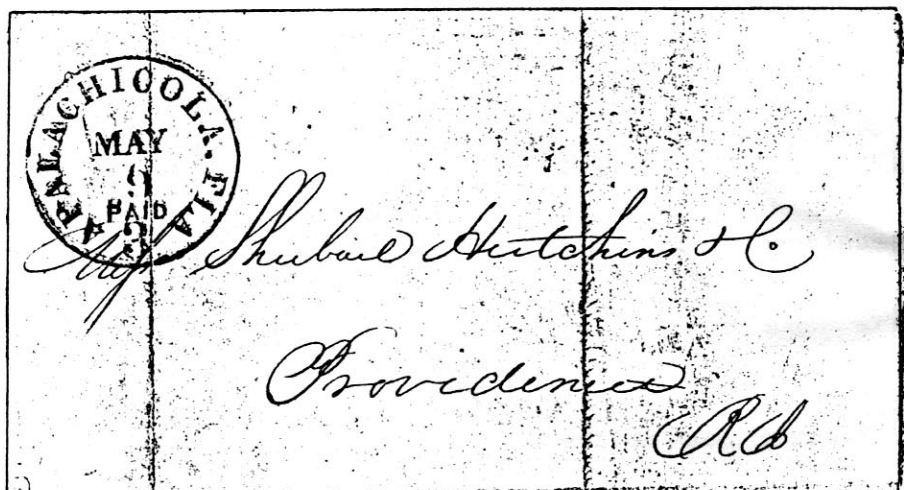 APALACHICOLA. FLA
MAY
9
PAID
3
Mess Shubael Hutchins & Co.
Providence
R I